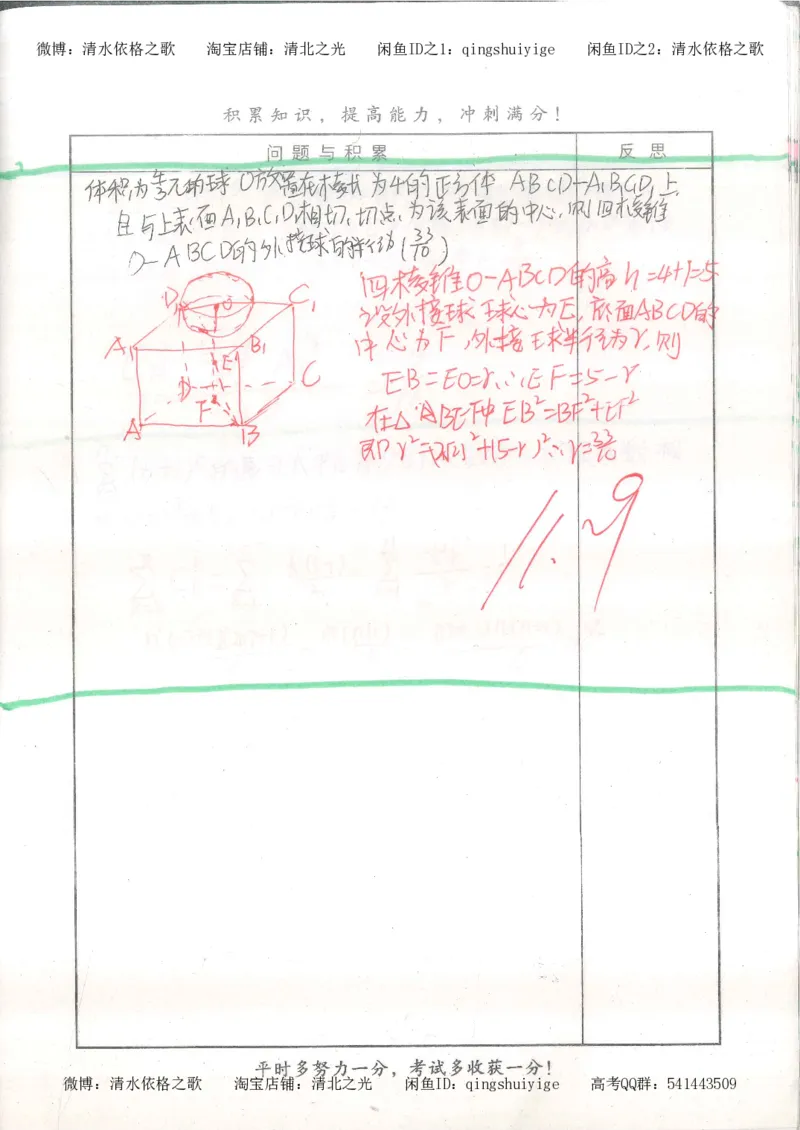 微博：清水依格之歌 淘宝店铺：清北之光 闲鱼ID之1：qingshuiyige 闲鱼ID之2：清水依格之歌
积累知识，提高能力，冲刺满分！
问题与积累 反思
体积为4/3π的球O放置在棱长为4的正方体ABCD-A₁B₁C₁D₁上,
且与上表面A₁B₁C₁D₁相切,切点为该表面的中心,则四棱锥
O-ABCD的外接球的半径为(33/10)
四棱锥O-ABCD的高h=4+1=5
设外接球球心为E,底面ABCD的
中心为F,外接球半径为r,则
EB=EO=r,∴EF=5-r
在△BEF中EB²=BF²+EF²
即r²=(2√2)²+(5-r)²∴r=33/10
D₁ O C₁
A₁ B₁
E
D C
F
A B
11.29
平时多努力一分，考试多收获一分！
微博：清水依格之歌 淘宝店铺：清北之光 闲鱼ID：qingshuiyige 高考QQ群：541443509